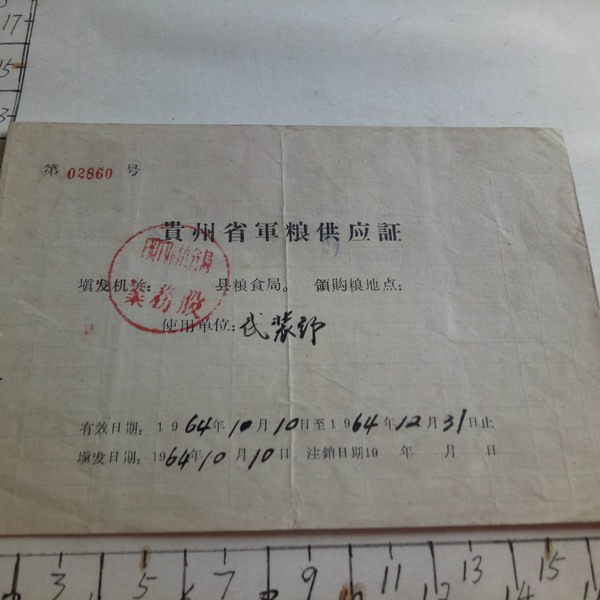 17
15
13
第 02860 号
貴州省軍粮供应証
粮食局
業務股
填发机关： 县粮食局。 領购粮地点：
使用单位：武装部
有效日期：1964年10月10日至1964年12月31日止
填发日期：1964年10月10日 注銷日期19 年 月 日
3 5 7 9 11 13 15
4 6 8 10 12 14 16